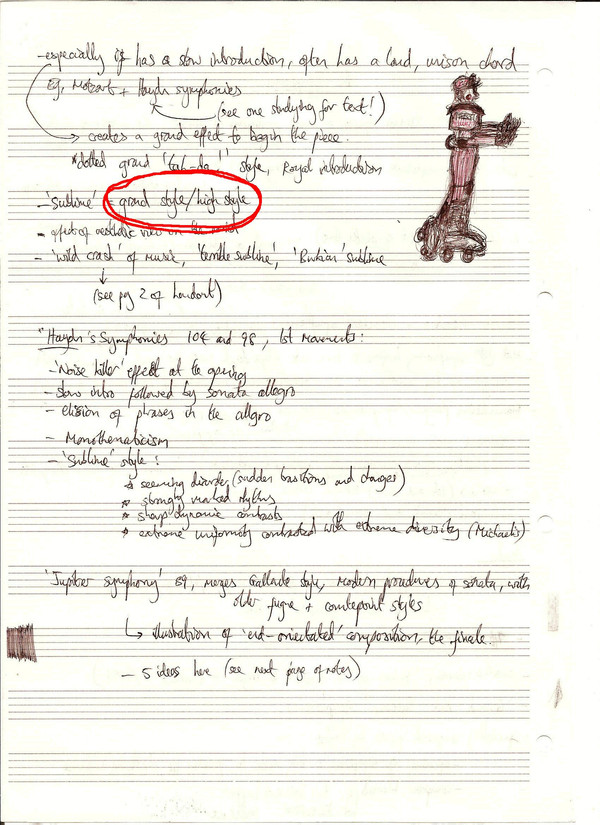 -especially if has a slow introduction, often has a loud, unison chord
Eg, Mozart + Haydn symphonies
(see one studying for test!)
→ creates a grand effect to begin the piece.
*dotted grand 'tah-da!' style, Royal introduction
-'Sublime' = grand style/high style
- effect of aesthetic view on the
- 'wild crash' of music, 'terrible sublime', 'Burkian' sublime
(see pg 2 of handout)
"Haydn's Symphonies 104 and 98, 1st Movements:
-'Noise killer' effect at the opening
-slow intro followed by sonata allegro
- elision of phrases in the allegro
- Monothematicism
-'Sublime' style:
* seeming disorder (sudden transitions and changes)
* strongly marked rhythms
* sharp dynamic contrasts
* extreme uniformity contrasted with extreme diversity (Michaelis)
'Jupiter Symphony' 89, merges Gallante style, modern procedures of sonata, with
older fugue + counterpoint styles
↳ illustration of 'end-orientated' composition, the finale.
- 5 ideas here (see next page of notes)